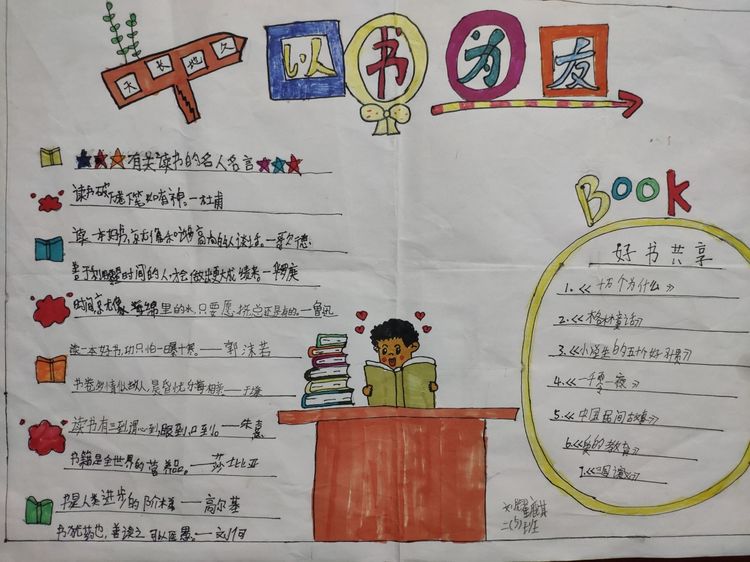 天长地久
以书为友
有关读书的名人名言
读书破 下笔如有神。一杜甫
读一本好书,京尤像和 高尚的人谈话。一歌德
善于利用 时间的人才会做出更大成绩者一
时间京尤像海绵里的水,只要愿挤,总还是有的。一鲁迅
读一本好书,功只怕一曝十寒。一郭沫若
书卷多情似故人,晨昏忧乐每相亲一于谦
读书有三到谓心到眼到口到。一朱熹
书籍是全世界的营养品。一莎士比亚
书是人类进步的阶梯 一高尔基
书犹药也,善读之可以医愚。一刘向
BooK
好书共享
1.《十万个为什么》
2.《格林童话》
3.《小学生的五十个好习惯》
4.《一千零一夜》
5.《中国民间故事》
6.《 的教育》
7.《三国演义》
二(5)班